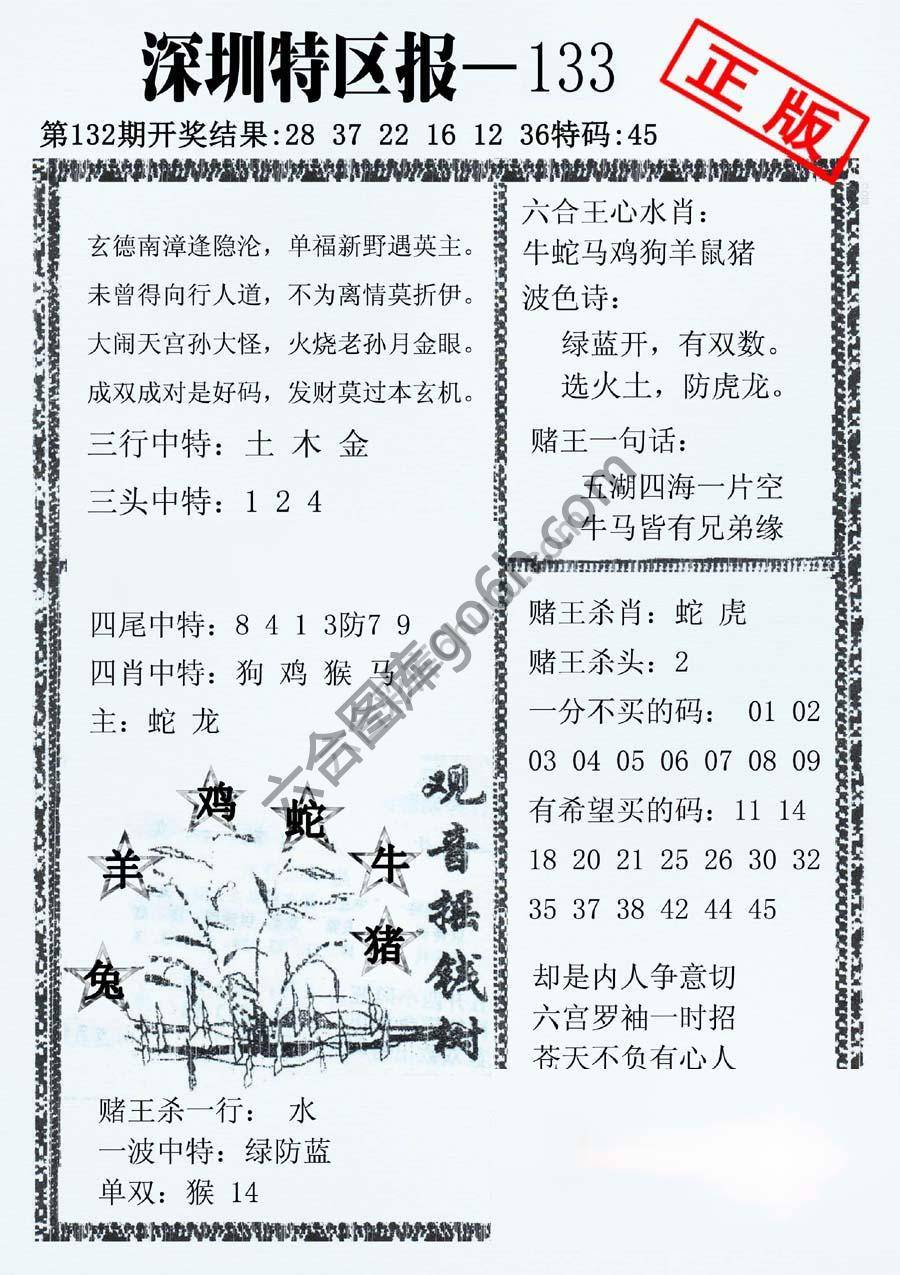 深圳特区报—133
正版
第132期开奖结果:28 37 22 16 12 36特码:45
玄德南漳逢隐沦，单福新野遇英主。
未曾得向行人道，不为离情莫折伊。
大闹天宫孙大怪，火烧老孙月金眼。
成双成对是好码，发财莫过本玄机。
三行中特：土 木 金
三头中特：1 2 4
四尾中特：8 4 1 3防7 9
四肖中特：狗 鸡 猴 马
主：蛇 龙
鸡
蛇
羊
牛
猪
兔
观音摇钱树
赌王杀一行： 水
一波中特：绿防蓝
单双：猴 14
六合王心水肖：
牛蛇马鸡狗羊鼠猪
波色诗：
绿蓝开，有双数。
选火土，防虎龙。
赌王一句话：
五湖四海一片空
牛马皆有兄弟缘
赌王杀肖：蛇 虎
赌王杀头：2
一分不买的码： 01 02
03 04 05 06 07 08 09
有希望买的码：11 14
18 20 21 25 26 30 32
35 37 38 42 44 45
却是内人争意切
六宫罗袖一时招
苍天不负有心人
六合图库go6h.com